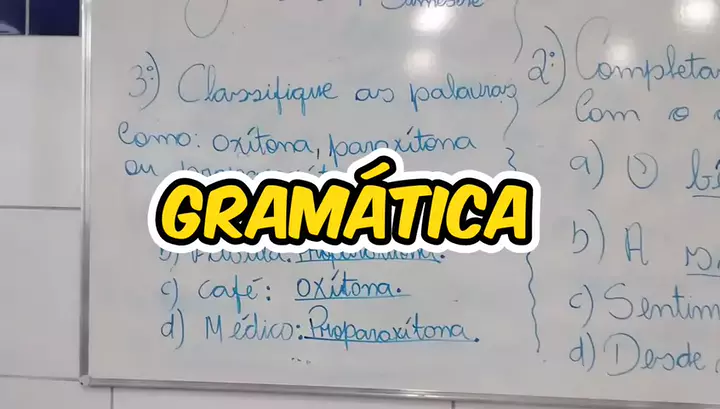 Semestre
3º) Classifique as palavras
como: oxítona, paroxítona
ou
GRAMÁTICA
b)
c) café: oxítona.
d) Médico: Proparoxítona.
...
2º) Completa
Com o
a) O
b) A
c) Sentim
d) Desde